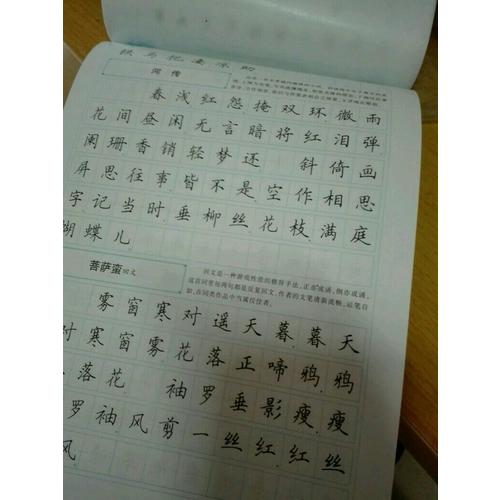 河传
春浅红怨掩双环微雨
花间昼闲无言暗将红泪弹
阑珊香销轻梦还 斜倚画
屏思往事皆不是空作相思
字记当时垂柳丝花枝满庭
蝴蝶儿
菩萨蛮回文
回文是一种游戏性质的修辞手法,正亦成诵,倒亦成诵。
雾窗寒对遥天暮暮天
对寒窗雾花落正啼鸦鸦
落花 袖罗垂影瘦瘦
罗袖风剪一丝红红丝
风